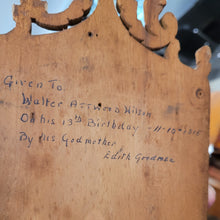 Given To
Walter Astwood Wilson
On his 13th Birthday - 11-19-
By his Godmother
Edith Goodmee